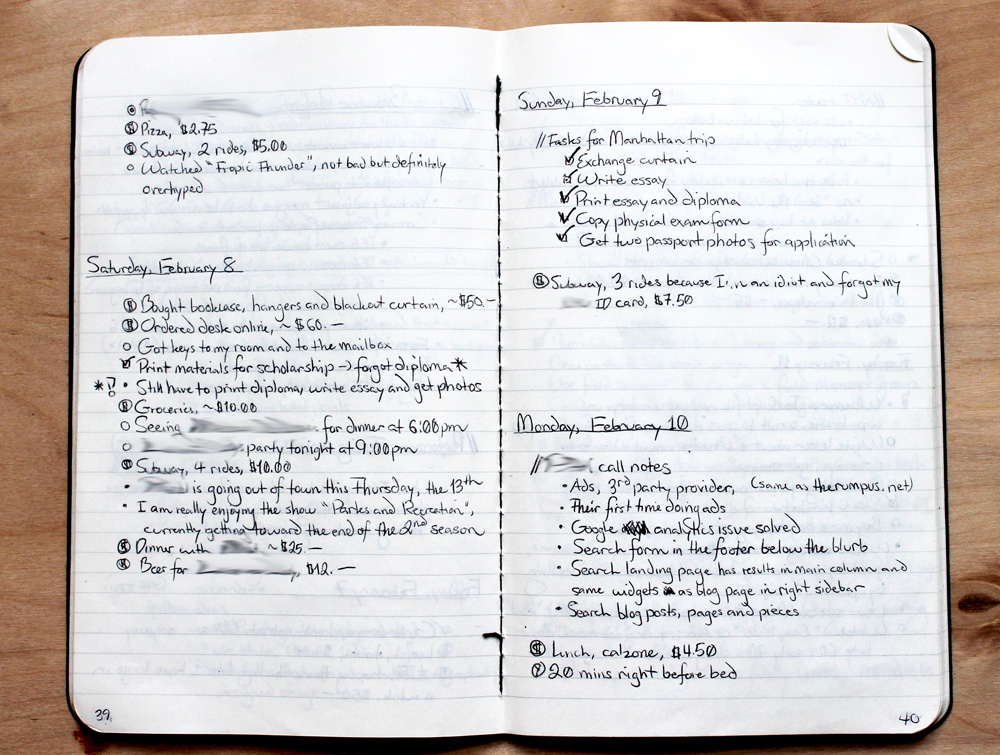 Pizza, $2.75
Subway, 2 rides, $5.00
Watched "Tropic Thunder", not bad but definitely
overhyped
Saturday, February 8
Bought bookcase, hangers and blackout curtain, ~$50.—
Ordered desk online, ~$60.—
Got keys to my room and to the mailbox
Print materials for scholarship -> forgot diploma *
*! • Still have to print diploma, write essay and get photos
Groceries, ~$10.00
Seeing for dinner at 6:00pm
party tonight at 9:00pm
Subway, 4 rides, $10.00
• is going out of town this Thursday, the 13th
• I am really enjoying the show "Parks and Recreation",
currently getting toward the end of the 2nd season
Dinner with ~$25.—
Beer for , $12.—
39
Sunday, February 9
// Tasks for Manhattan trip
Exchange curtain
Write essay
Print essay and diploma
Copy physical exam form
Get two passport photos for application
Subway, 3 rides because I'm an idiot and forgot my
ID card, $7.50
Monday, February 10
// call notes
• Ads, 3rd party provider, (same as therumpus.net)
• Their first time doing ads
• Google analytics issue solved
• Search form in the footer below the blurb
• Search landing page has results in main column and
same widgets as blog page in right sidebar
• Search blog posts, pages and pieces
Lunch, calzone, $4.50
20 mins right before bed
40